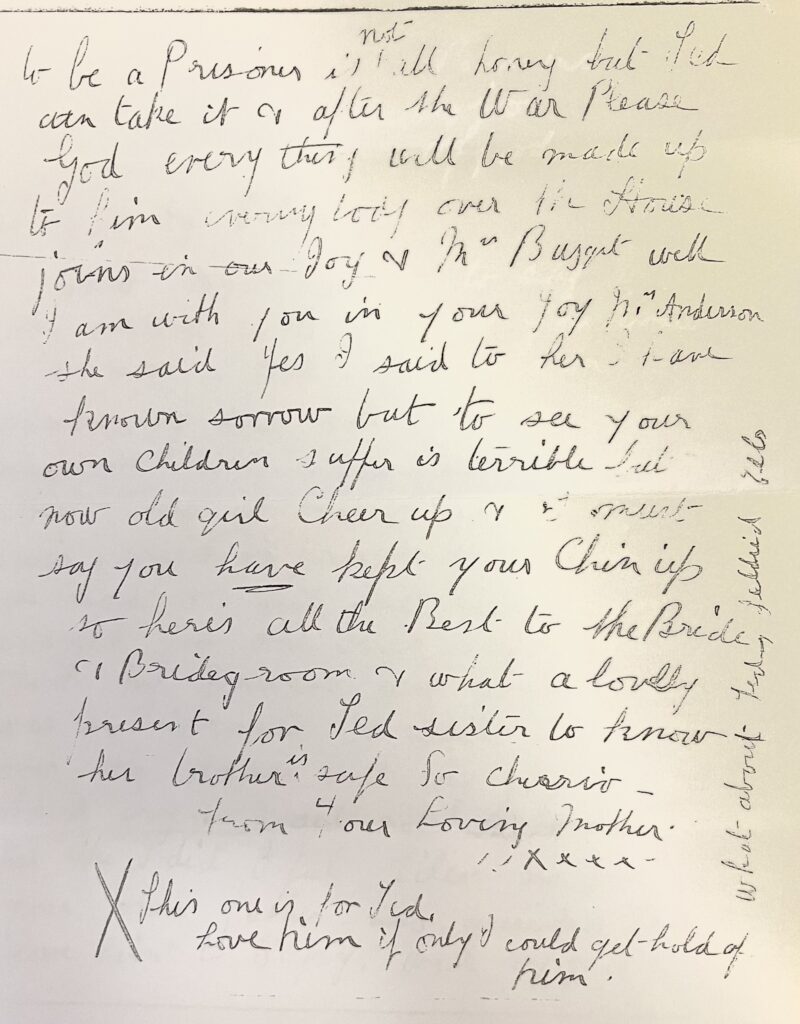 to be a Prisoner is not all honey but Ted
can take it & after the War Please
God everything will be made up
to him everybody over the House
joins in our Joy & Mrs well
I am with you in your Joy Mrs Anderson
she said Yes I said to her I have
known sorrow but to see your
own Children suffer is terrible but
now old girl Cheer up & I must
say you have kept your Chin up
so here's all the Best to the Bride
& Bridegroom & what a lovely
present for Ted sister to know
her brother is safe So cheerio -
from Your Loving Mother.
x x x x
X This one is for Ted.
Love him if only I could get hold of
him.
What about Teddy